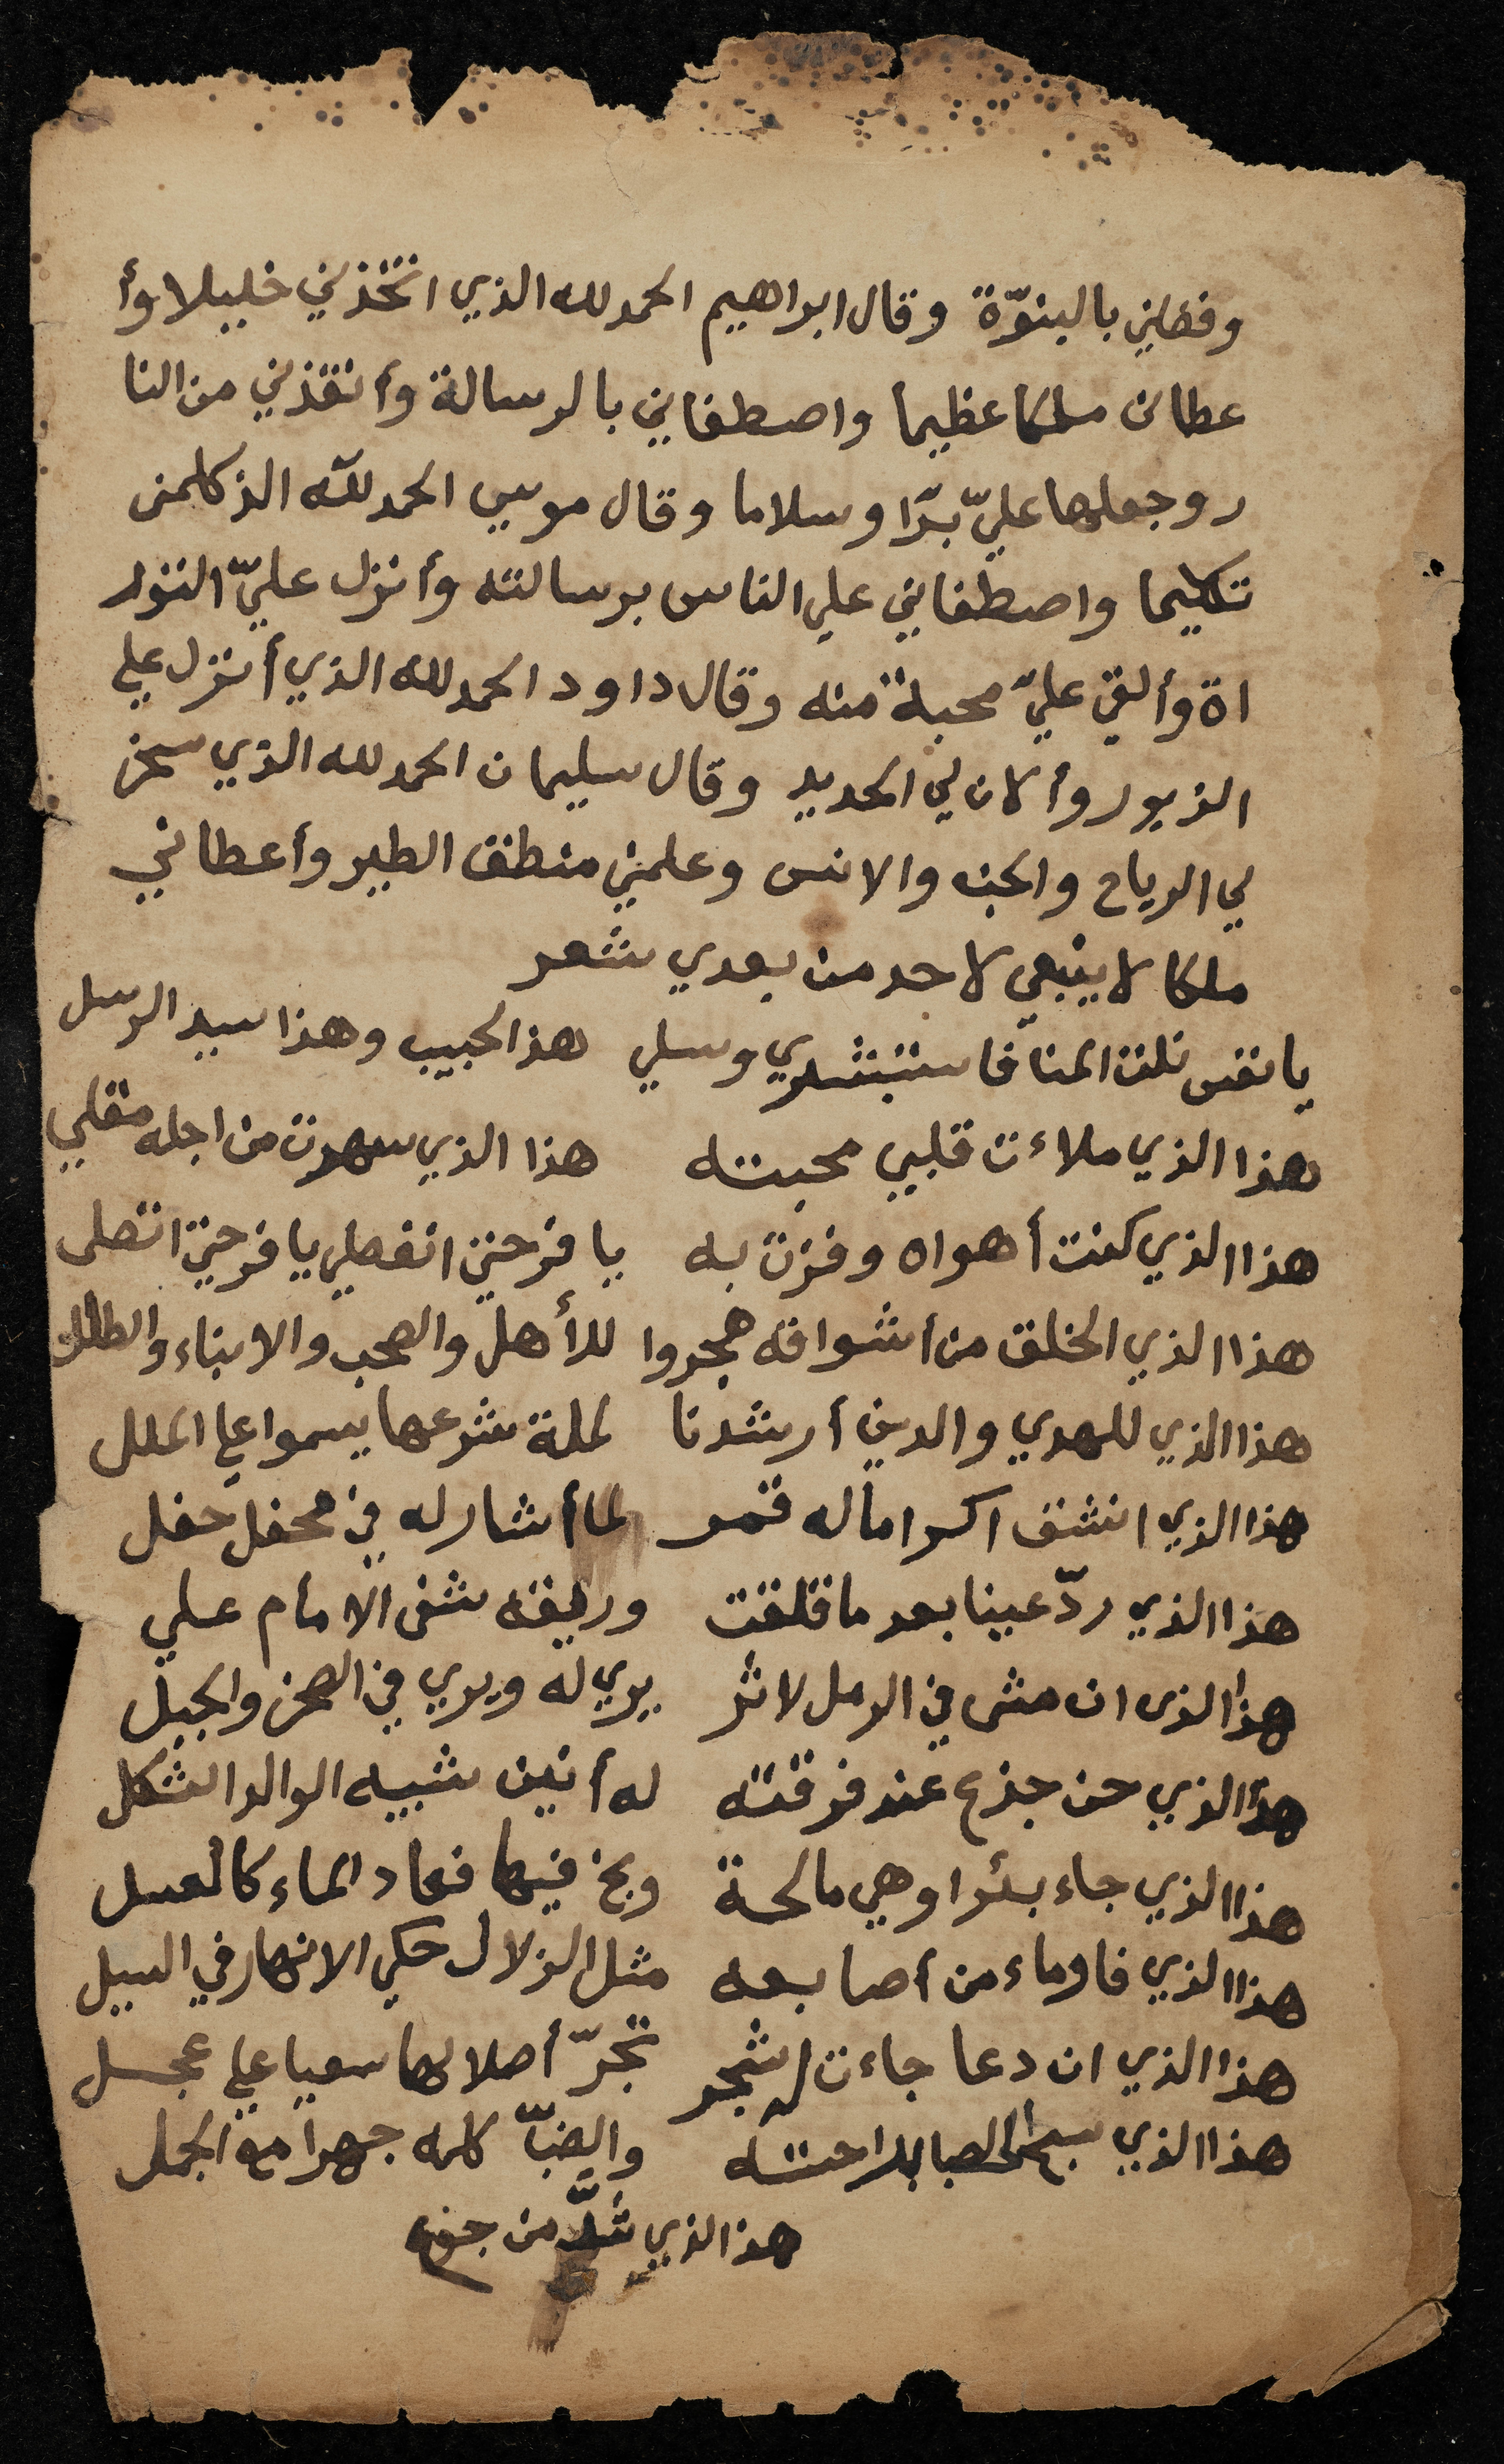 وفضلني بالبنوّة وقال ابراهيم الحمد لله الذي اتخذني خليلا وأ
عطاني ملكا عظيما واصطفاني بالرسالة وأنقذني من النا
ر وجعلها عليّ بردا وسلاما وقال موسي الحمد لله الذ كلمني
تكليما واصطفاني علي الناس برسالته وأنزل عليّ التور
اة وألقي عليّ محبة منه وقال داود الحمد لله الذي أنزل علي
الزبور وألان لي الحديد وقال سليمان الحمد لله الذي سخر
لي الرياح والجن والانس وعلمني منطق الطير وأعطاني
ملكا لا ينبغي لاحد من بعدي شعر
يا نفس نلت المنا فاستبشري وسلي هذ الحبيب وهذا سيد الرسل
هذا الذي ملاءت قلبي محبته هذا الذي سهرت من اجله مقلي
هذا الذي كنت أهواه وفزت به يا قرحتي انفصلي يا فرحتي اتصلي
هذا الذي الخلق من اشواقه هجروا للأهل والصحب والابناء والطلل
هذا الذي للهدي والدين أرشدنا لملة شرعها يسموا علي الملل
هذا الذي انشق اكراما له قمر لما أشار له في محفل حفل
هذا الذي ردّ عينا بعد ما قلقت وريقه شفي الامام علي
هذا الذي ان مشي في الرمل لا اثر يري له ويري في الصخر والجبل
هذا الذي حن جذع عند فرقته له أنين شبيه الوالد الثكل
هذا الذي جاء بئرا وهي مالحة ومج فيها فعاد الماء كالعسل
هذا الذي فاوماء من أصابعه مثل الزلال حكي الانهار في السيل
هذا الذي ان دعا جاءت له شجر تجرّ أصلابها سعيا علي عجل
هذا الذي سبح الحصا براحته والضبّ كلمه جهرا مع الجمل
هذ الذي شدّ من جوع